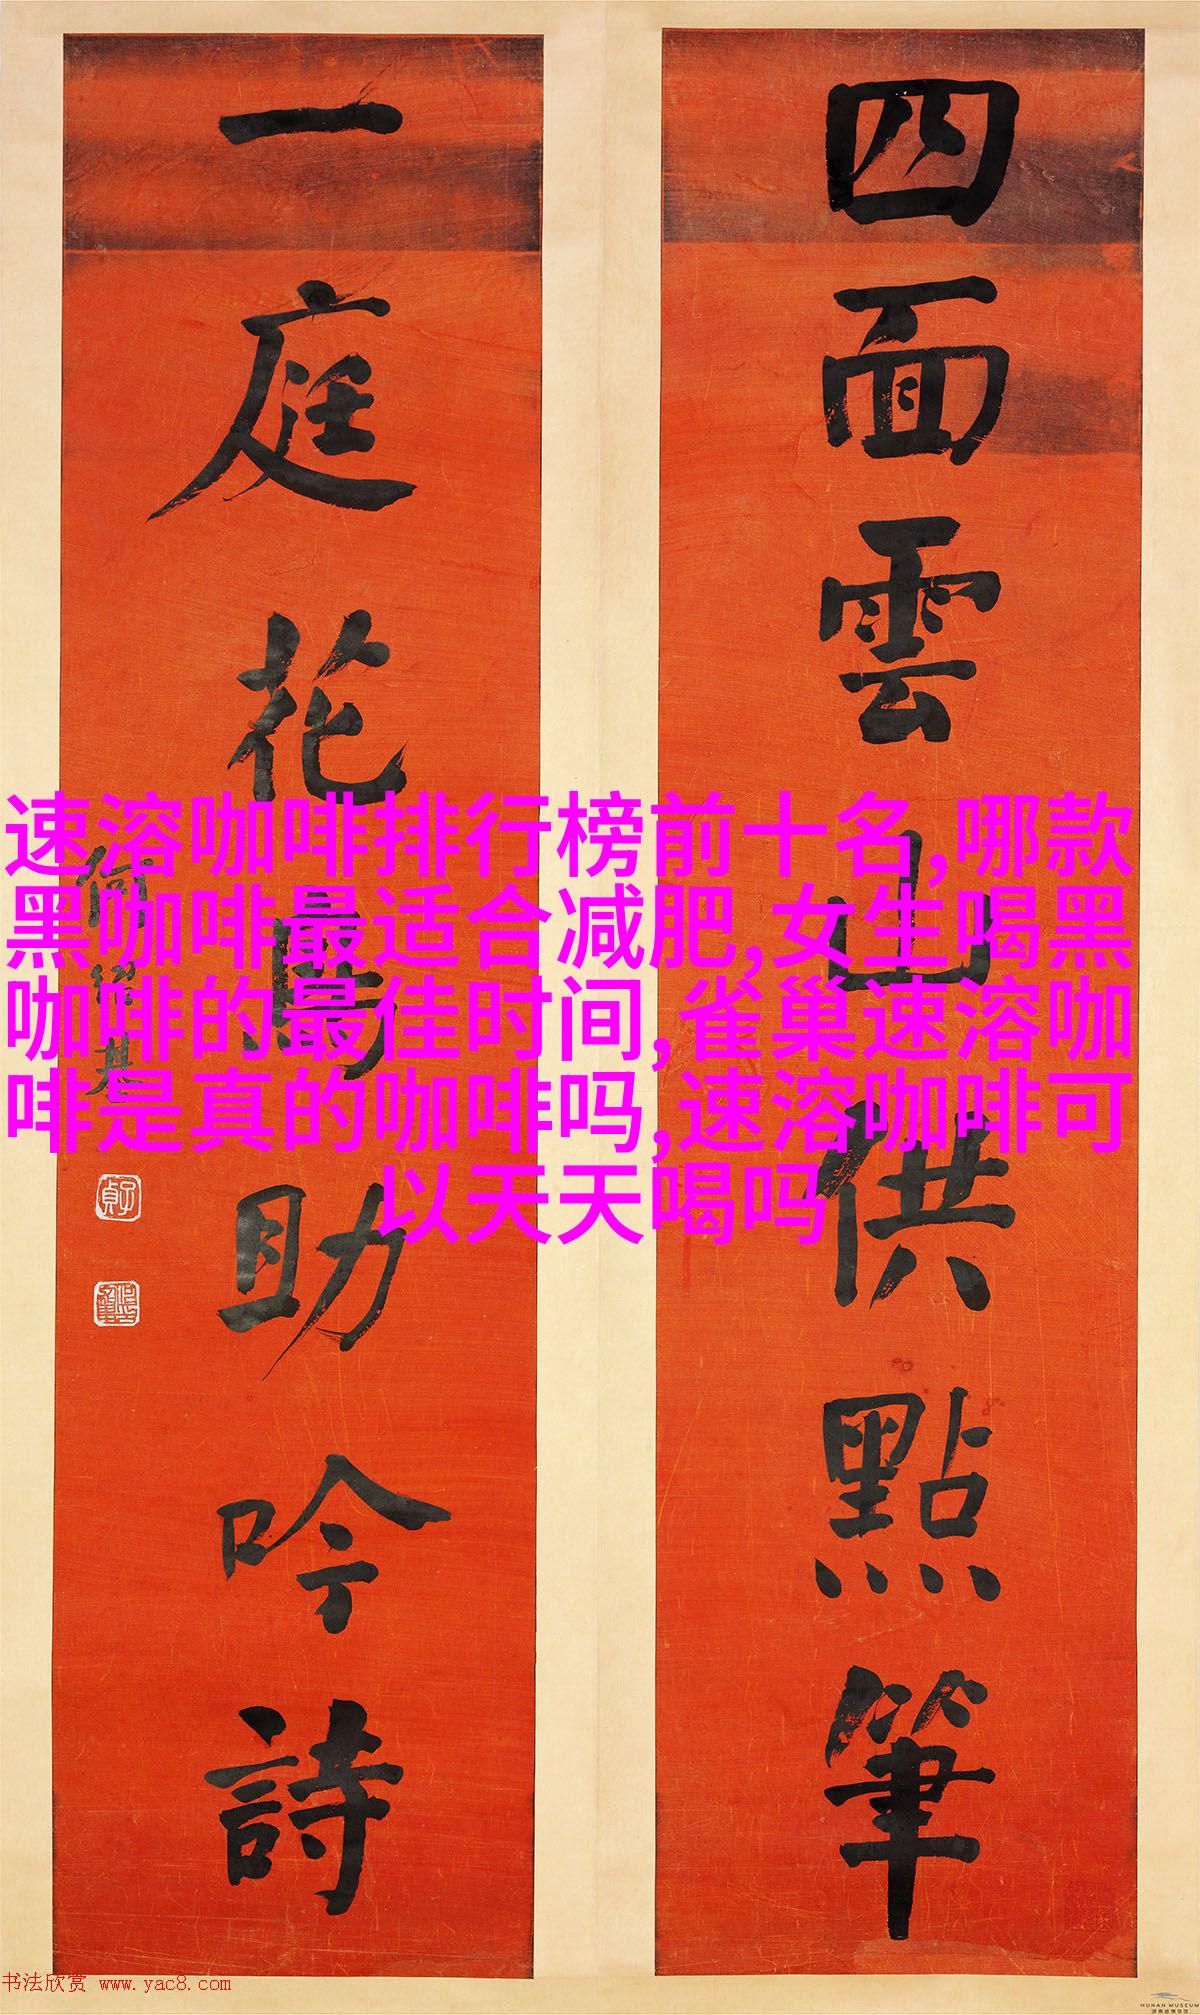 四面雲山供點筆
一庭花鳥助吟詩
何紹基
速溶咖啡排行榜前十名,哪款
黑咖啡最适合减肥,女生喝黑
咖啡的最佳时间,雀巢速溶咖
啡是真的咖啡吗,速溶咖啡可
以天天喝吗
子貞
书法欣赏 www.yac8.com
HUNAN MUSEUM